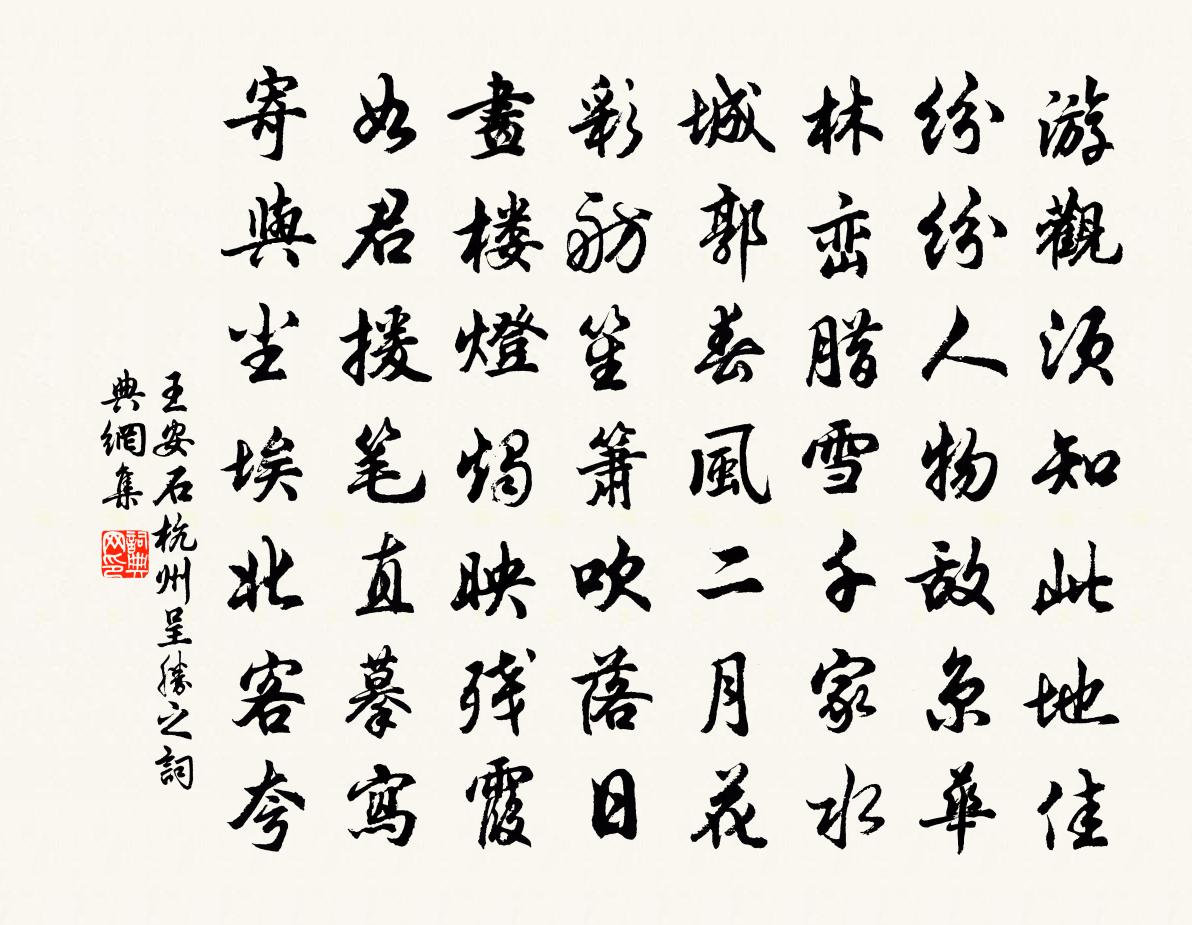 游觀須知此地佳
紛紛人物敵京華
林巒腊雪千家水
城郭春風二月花
彩舫笙簫吹落日
畫楼燈燭映残霞
如君援笔直摹寫
寄與尘埃北客夸
王安石杭州呈勝之詞
典網集
詞典
网印